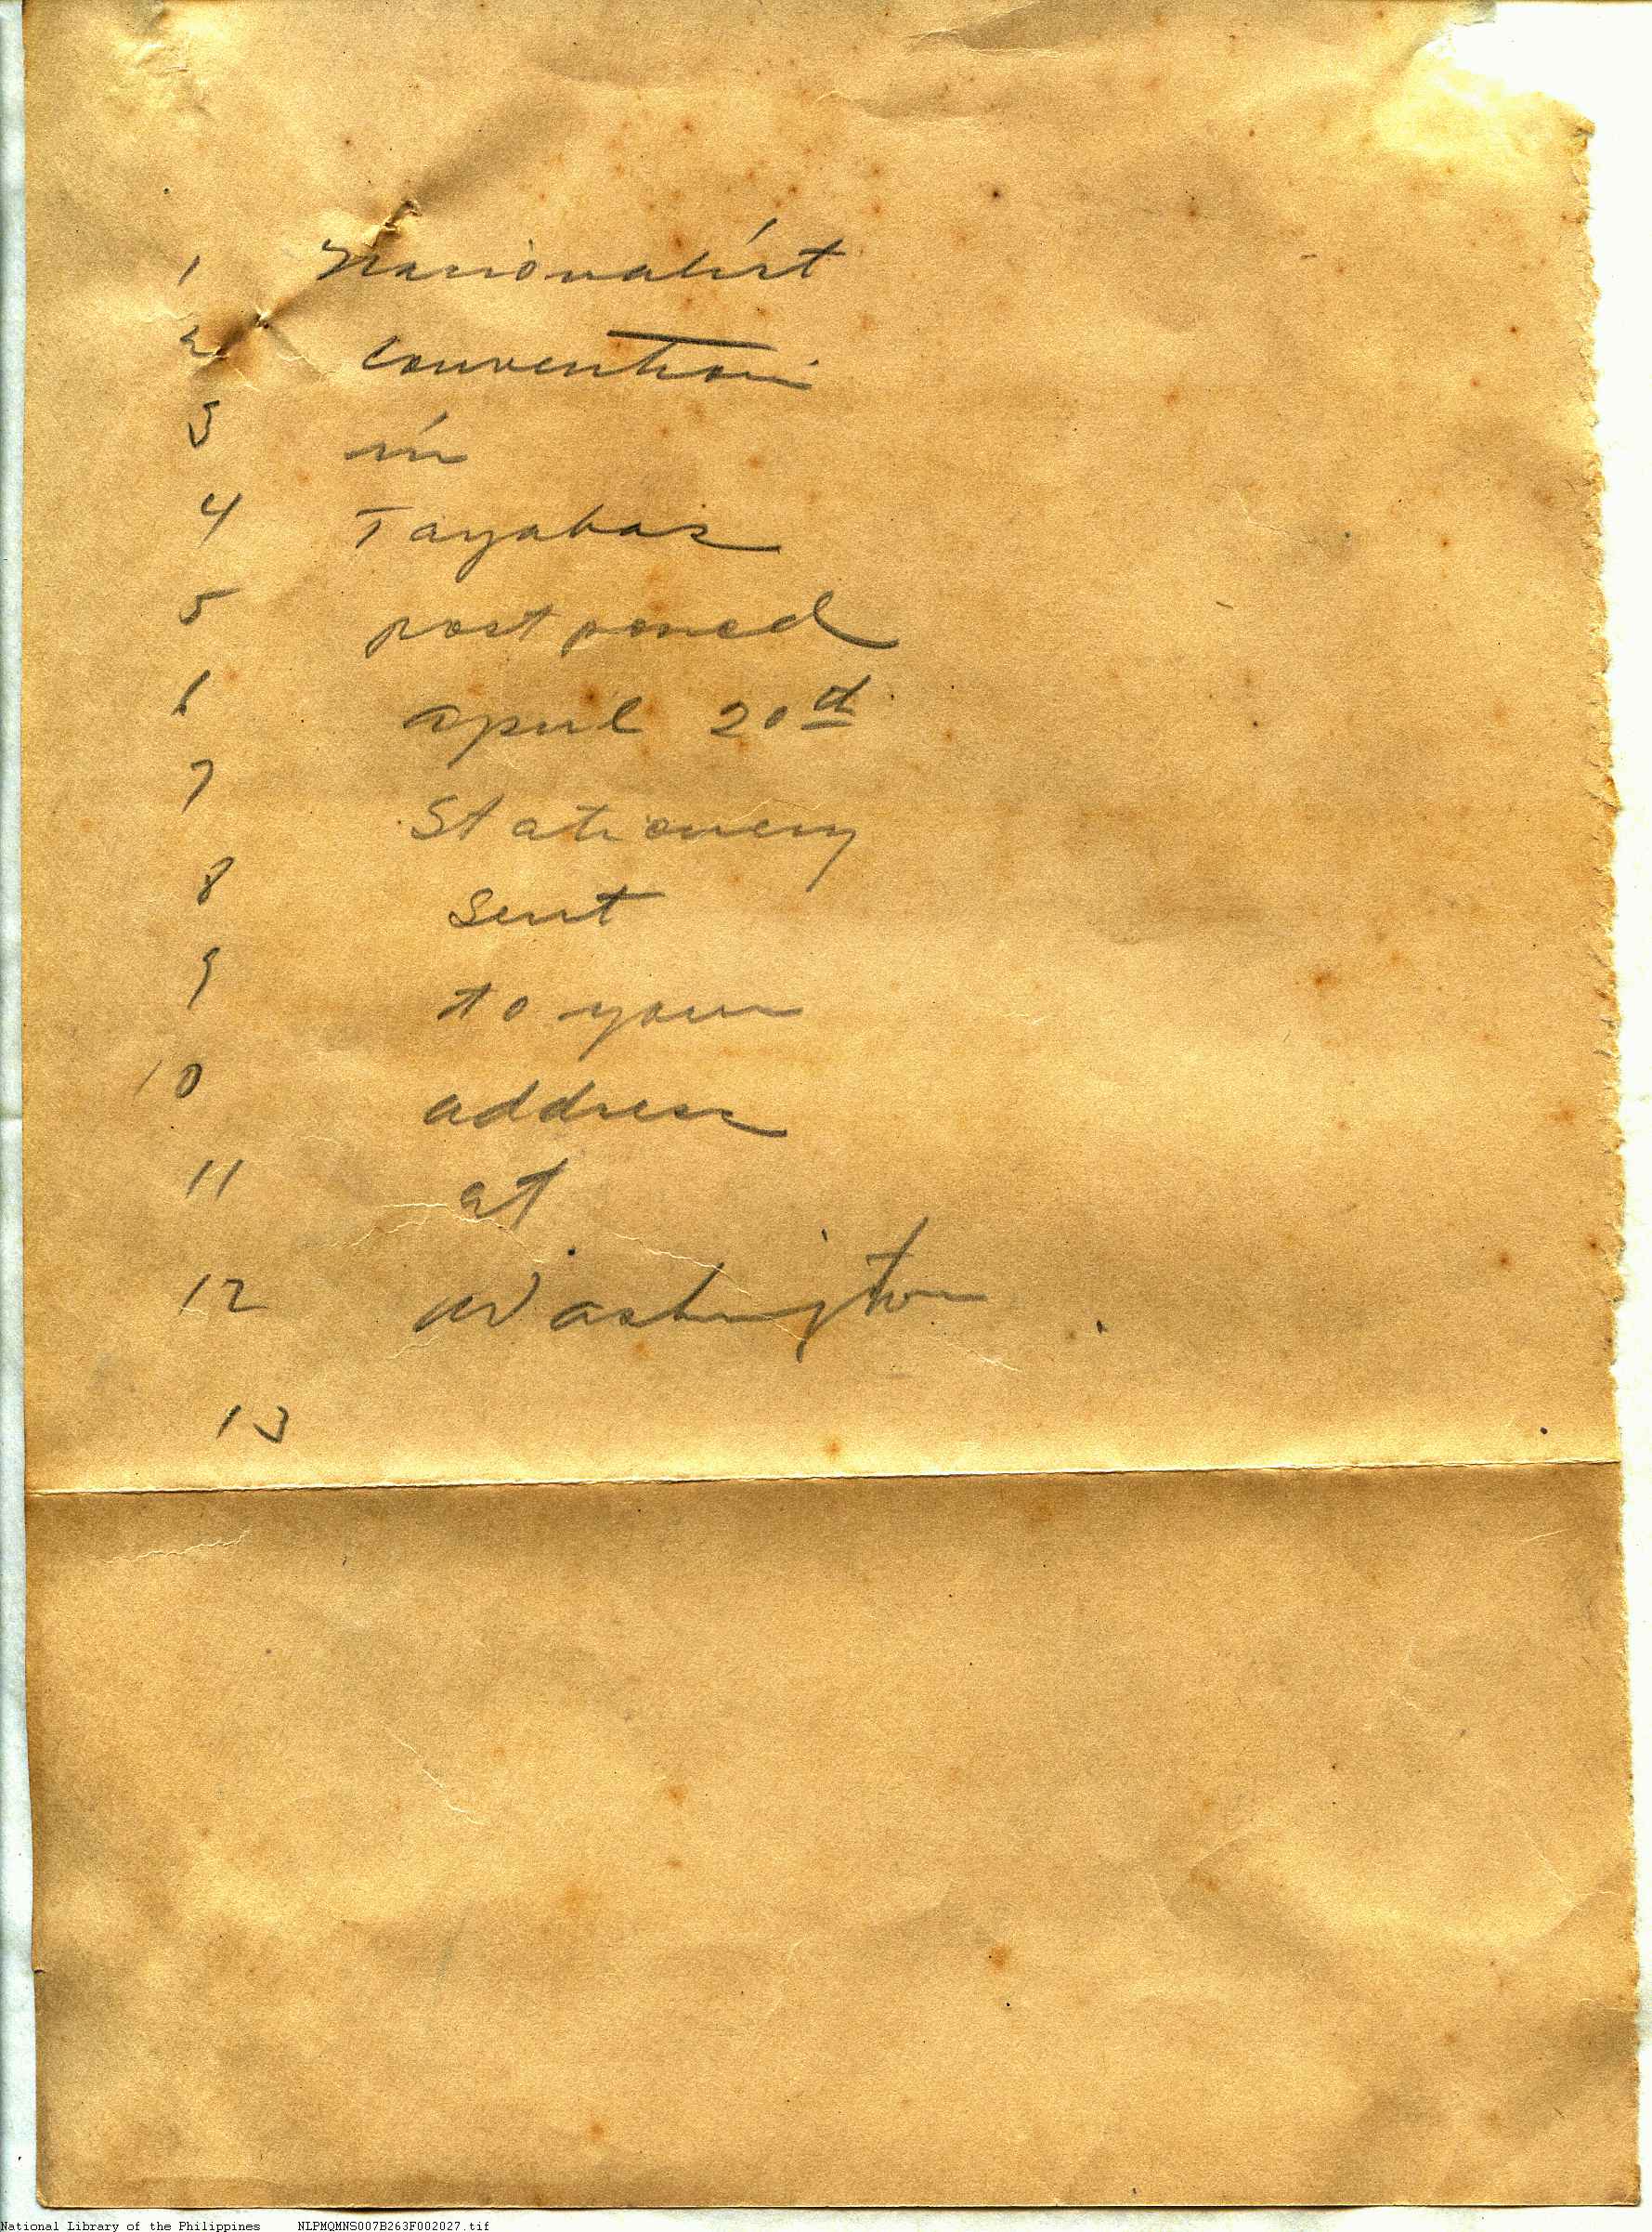 1 Nacionalist
2 Convention
3 in
4 Tayabas
5 postponed
6 april 20d
7 Stationery
8 sent
9 to your
10 address
11 at
12 Washington
13
National Library of the Philippines NLPMQMNS007B263F002027.tif